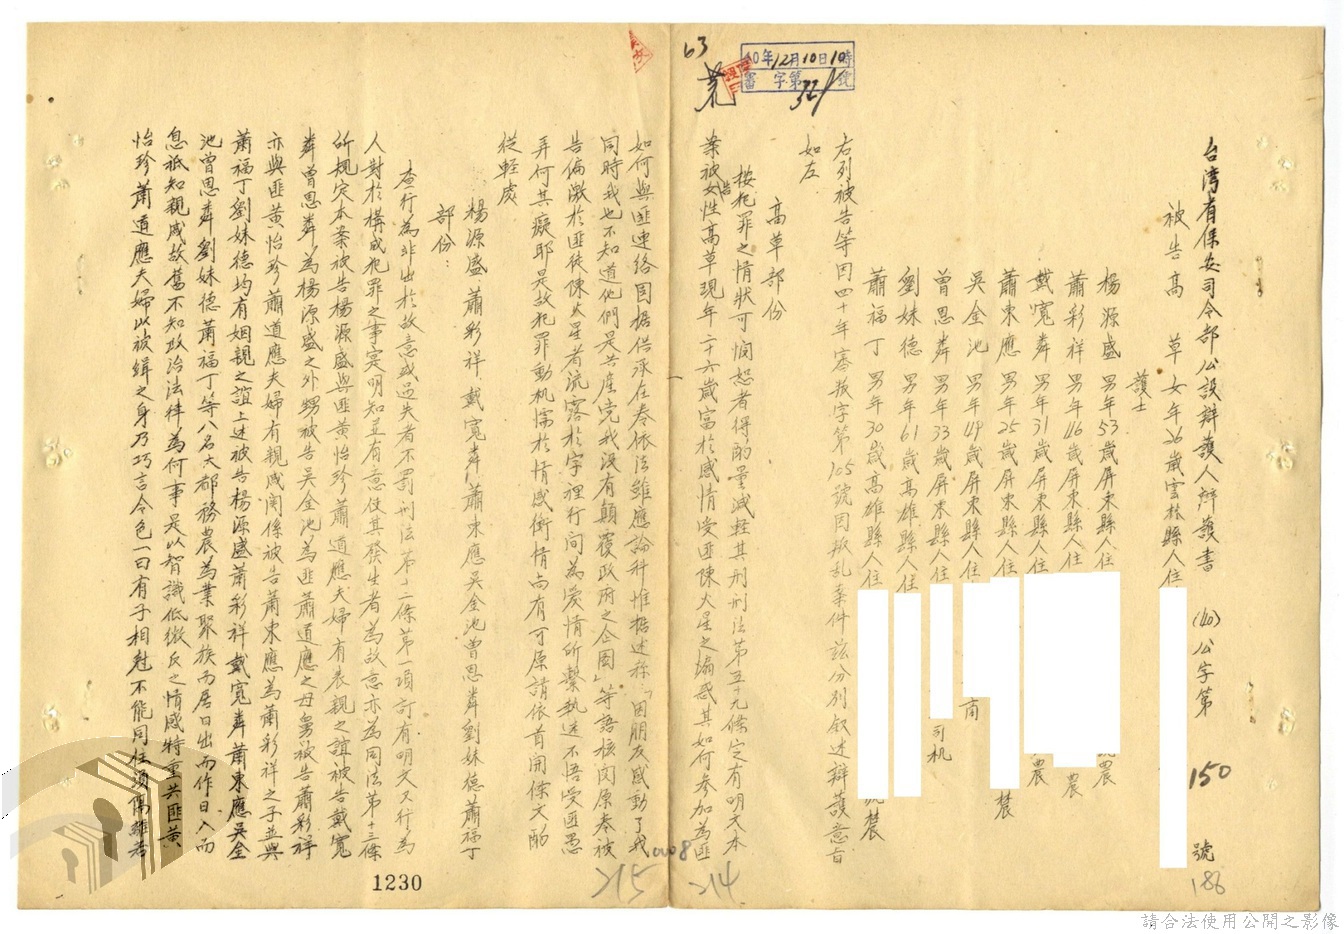 台湾省保安司令部公設辯護人辯護書 (40)公字第 150 號
被告高 草 女年26歲雲林縣人住
護士
楊源盛 男年53歲屏東縣人住 農
蕭彩祥 男年46歲屏東縣人住 農
戴寬粦 男年31歲屏東縣人住 農
蕭東應 男年25歲屏東縣人住 農
吳全池 男年49歲屏東縣人住 商
曾思粦 男年33歲屏東縣人住 司机
劉妹德 男年61歲高雄縣人住
蕭福丁 男年30歲高雄縣人住 農
右列被告等因四十年審叛字第105號因叛乱案件茲分別叙述辯護意旨
如左
高草部份
按犯罪之情狀可憫恕者得酌量減軽其刑刑法第五十九條定有明文本
案被告女性高草現年二十六歲富於感情受匪陳火星之煽惑其如何參加為匪
如何與匪連絡固据供承在卷依法雖應論科惟据述称「因朋友感動了我
同時我也不知道他們是共產党我没有顛覆政府之企圖」等語核閱原卷被
告偏激於匪徒陳火星者流露於字裡行间為爱情所繫執迷不悟受匪愚
弄何其癡耶是故犯罪動机懦於情感衝情尚有可原請依首開條文酌
從輕處
楊源盛 蕭彩祥 戴寬粦蕭東應吳全池曾思粦劉妹德蕭福丁
部份：
查行為非出於故意或過失者不罰刑法第十二條第一項訂有明文又行為
人對於構成犯罪之事实明知並有意使其發生者為故意亦為同法第十三條
所規定本案被告楊源盛與匪黄怡珍蕭道應夫婦有表親之誼被告戴寬
粦曾思粦為楊源盛之外甥被告吳全池為匪蕭道應之母舅被告蕭彩祥
亦與匪黄怡珍蕭道應夫婦有親戚関係被告蕭東應為蕭彩祥之子並與
蕭福丁劉妹德均有姻親之誼上述被告楊源盛蕭彩祥戴寬粦蕭東應吳全
池曾思粦劉妹德蕭福丁等八名大都務農為業聚族而居日出而作日入而
息祇知親戚故舊不知政治法律為何事是以智識低微反之情感特重共匪黄
怡珍蕭道應夫婦以被緝之身乃巧言令色一曰有子相尅不能同住須隔離若
63
40年12月10日10時
審 字第321號
186
214
0008
215
1230
請合法使用公開之影像